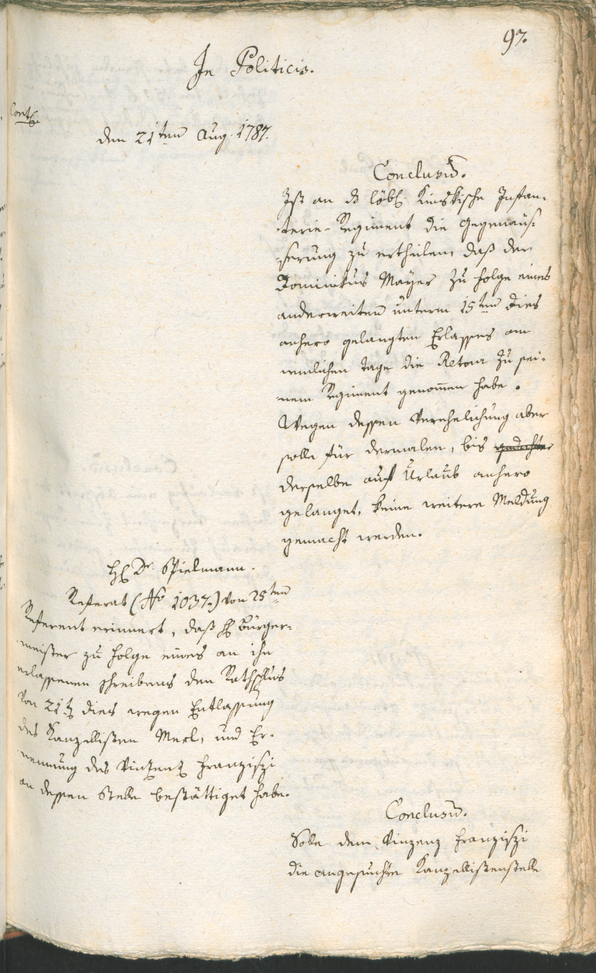 97.
In Politicis.
Cont.
den 21ten Aug. 1787.
Conclusū.
Ist an d löbl. Kinskische Infan-
terie-Regiment die Gegenäus-
serung zu ertheilen, daß der
Dominikus Mayer zu folge eines
anderweiten unterm 15ten dies
anhero gelangten Erlasses am
nemlichen Tage die Retour zu sei-
nem Regiment genom̄en habe.
Wegen dessen Verehelichung aber
solle für dermalen, bis gedachter
derselbe auf Urlaub anhero
gelanget, keine weitere Meldung
gemacht werden.
H. Dr. Spielmann.
Referat (No 1037.) von 25ten
Referent erinnert, daß H. Bürger-
meister zu folge eines an ihn
erlassenen Schreibens den Rathschluß
von 21t dies wegen Entlassung
des Kanzellisten Merl, und Er-
nennung des Vinzenz Franziszi
an dessen Stelle bestättiget habe.
Conclusū.
Solle dem Vinzenz Franziszi
die angesuchte Kanzellistenstelle